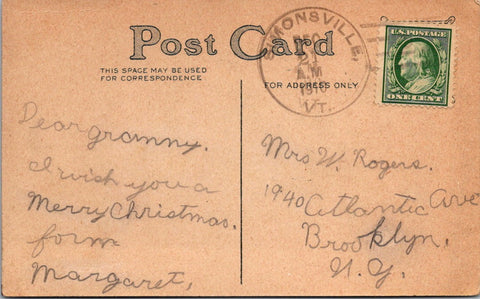 Post Card
THIS SPACE MAY BE USED
FOR CORRESPONDENCE
FOR ADDRESS ONLY
SIMONSVILLE,
DEC
21
A.M
VT.
U.S. POSTAGE
ONE CENT
Dear granny.
I wish you a
Merry Christmas.
form
Margaret,
Mrs W. Rogers.
1940 Atlantic Ave
Brooklyn.
N.Y.